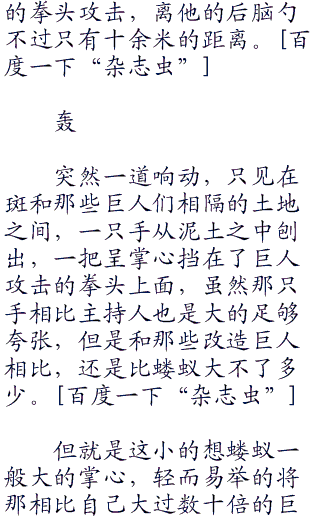 的拳头攻击，离他的后脑勺
不过只有十余米的距离。[百
度一下“杂志虫”]
轰
突然一道响动，只见在
斑和那些巨人们相隔的土地
之间，一只手从泥土之中刨
出，一把呈掌心挡在了巨人
攻击的拳头上面，虽然那只
手相比主持人也是大的足够
夸张，但是和那些改造巨人
相比，还是比蝼蚁大不了多
少。[百度一下“杂志虫”]
但就是这小的想蝼蚁一
般大的掌心，轻而易举的将
那相比自己大过数十倍的巨